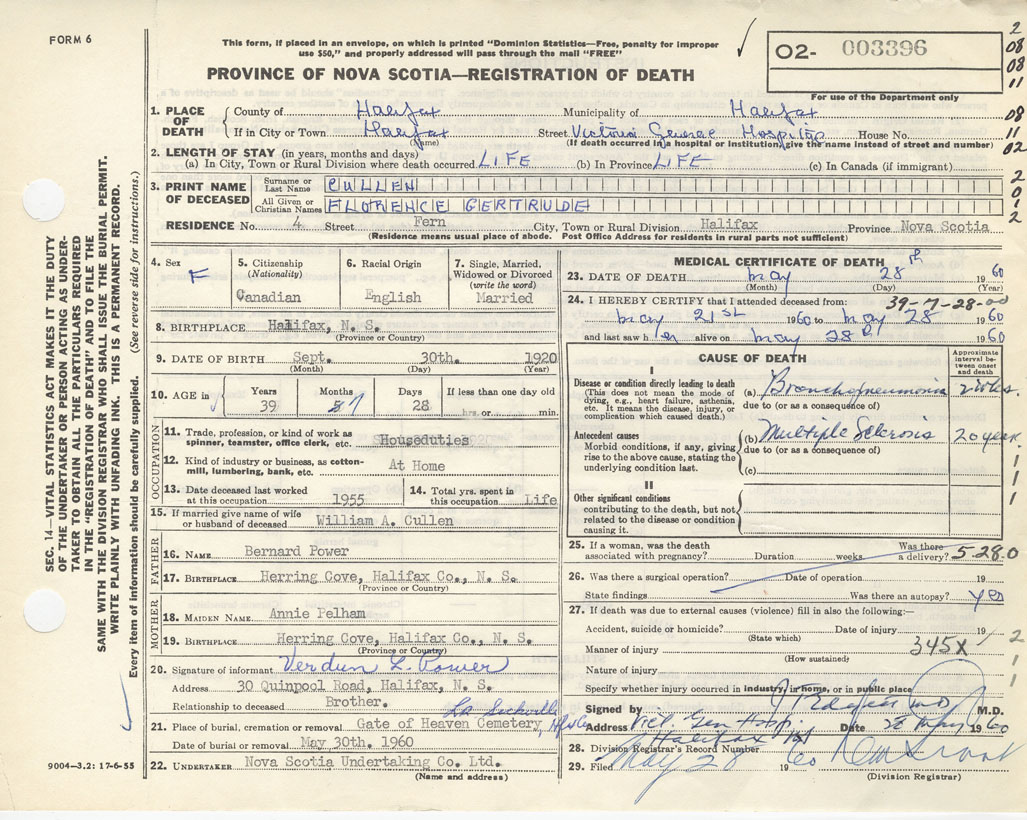 FORM 6
This form, if placed in an envelope, on which is printed "Dominion Statistics—Free, penalty for improper
use $50," and properly addressed will pass through the mail "FREE"
PROVINCE OF NOVA SCOTIA—REGISTRATION OF DEATH
02- 003396
For use of the Department only
2
08
08
11
08
11
02
2
0
1
2
SEC. 14—VITAL STATISTICS ACT MAKES IT THE DUTY
OF THE UNDERTAKER OR PERSON ACTING AS UNDER-
TAKER TO OBTAIN ALL THE PARTICULARS REQUIRED
IN THE "REGISTRATION OF DEATH" AND TO FILE THE
SAME WITH THE DIVISION REGISTRAR WHO SHALL ISSUE THE BURIAL PERMIT.
WRITE PLAINLY WITH UNFADING INK. THIS IS A PERMANENT RECORD.
Every item of information should be carefully supplied. (See reverse side for instructions.)
1. PLACE OF DEATH
County of Halifax Municipality of Halifax
If in City or Town Halifax Street Victoria General Hospital House No.
(Name) (If death occurred in a hospital or Institution, give the name instead of street and number)
2. LENGTH OF STAY (in years, months and days)
(a) In City, Town or Rural Division where death occurred LIFE (b) In Province LIFE (c) In Canada (if immigrant)
3. PRINT NAME OF DECEASED
Surname or Last Name CULLEN
All Given or Christian Names FLORENCE GERTRUDE
RESIDENCE No. 4 Street Fern City, Town or Rural Division Halifax Province Nova Scotia
(Residence means usual place of abode. Post Office Address for residents in rural parts not sufficient)
4. Sex F
5. Citizenship (Nationality) Canadian
6. Racial Origin English
7. Single, Married, Widowed or Divorced (write the word) Married
8. BIRTHPLACE Halifax, N. S.
(Province or Country)
9. DATE OF BIRTH Sept. 30th. 1920
(Month) (Day) (Year)
10. AGE in Years 39 Months 7 Days 28 If less than one day old hrs. or min.
OCCUPATION
11. Trade, profession, or kind of work as spinner, teamster, office clerk, etc. Houseduties
12. Kind of industry or business, as cotton-mill, lumbering, bank, etc. At Home
13. Date deceased last worked at this occupation 1955
14. Total yrs. spent in this occupation Life
15. If married give name of wife or husband of deceased William A. Cullen
FATHER
16. NAME Bernard Power
17. BIRTHPLACE Herring Cove, Halifax Co., N. S.
(Province or Country)
MOTHER
18. MAIDEN NAME Annie Pelham
19. BIRTHPLACE Herring Cove, Halifax Co., N. S.
(Province or Country)
20. Signature of informant Verdun L. Power
Address 30 Quinpool Road, Halifax, N. S.
Relationship to deceased Brother.
21. Place of burial, cremation or removal Gate of Heaven Cemetery, Sackville
Date of burial or removal May 30th. 1960
22. UNDERTAKER Nova Scotia Undertaking Co. Ltd.
(Name and address)
9004—3.2: 17-6-55
MEDICAL CERTIFICATE OF DEATH
23. DATE OF DEATH May 28th 1960
(Month) (Day) (Year)
24. I HEREBY CERTIFY that I attended deceased from: 39-7-28-00
May 21st 1960 to May 28 1960
and last saw her alive on May 28th 1960
CAUSE OF DEATH
Approximate interval between onset and death
I
Disease or condition directly leading to death
(This does not mean the mode of dying, e.g., heart failure, asthenia, etc. It means the disease, injury, or complication which caused death.)
(a) Bronchopneumonia 2 wks.
due to (or as a consequence of)
Antecedent causes
Morbid conditions, if any, giving rise to the above cause, stating the underlying condition last.
(b) Multiple Sclerosis 20 years
due to (or as a consequence of)
(c)
1
1
1
II
Other significant conditions
contributing to the death, but not related to the disease or condition causing it.
25. If a woman, was the death associated with pregnancy? Duration weeks. Was there a delivery? 5-28.0
26. Was there a surgical operation? Date of operation 19
State findings Was there an autopsy? Yes
27. If death was due to external causes (violence) fill in also the following:—
Accident, suicide or homicide? Date of injury 19
(State which)
Manner of injury 345X
(How sustained)
Nature of injury
2
1
1
Specify whether injury occurred in industry, in home, or in public place
Signed by M.D.
Address Vict. Gen Hosp. Date 28 May 1960
Halifax
28. Division Registrar's Record Number
29. Filed May 28 1960
(Division Registrar)